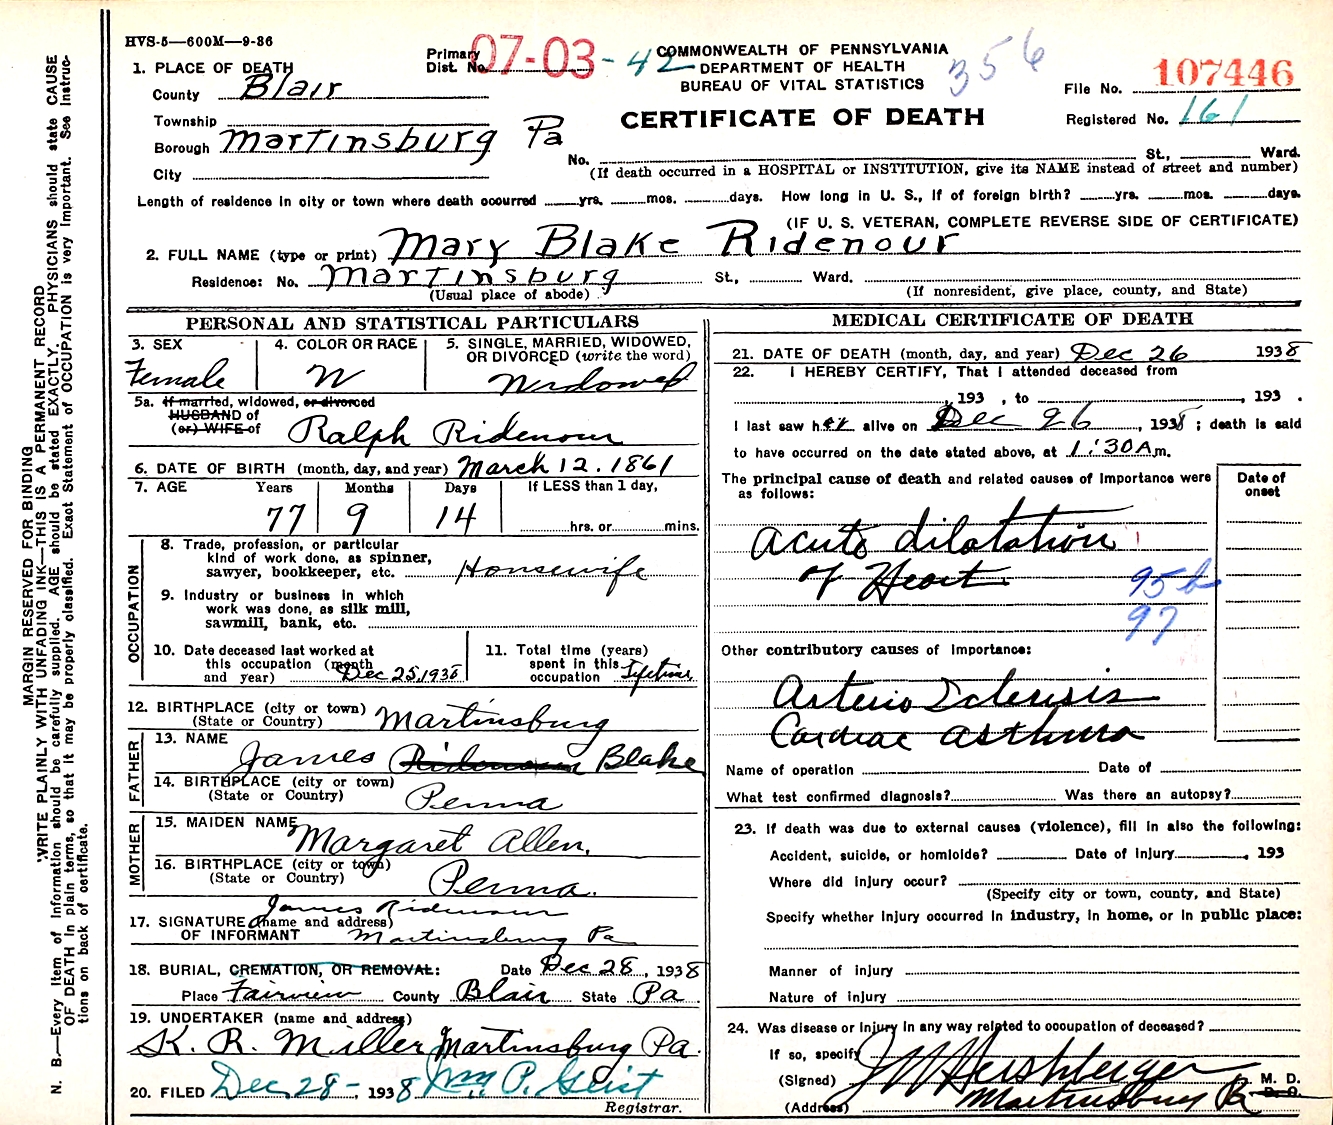 HVS-5—600M—9-36
Primary Dist. No. 07-03-42
COMMONWEALTH OF PENNSYLVANIA
DEPARTMENT OF HEALTH
BUREAU OF VITAL STATISTICS
356
File No. 107446
Registered No. 161
CERTIFICATE OF DEATH
1. PLACE OF DEATH
County Blair
Township
Borough Martinsburg Pa
City
No. St., Ward.
(If death occurred in a HOSPITAL or INSTITUTION, give its NAME instead of street and number)
Length of residence in city or town where death occurred yrs. mos. days. How long in U. S., if of foreign birth? yrs. mos. days.
(IF U. S. VETERAN, COMPLETE REVERSE SIDE OF CERTIFICATE)
2. FULL NAME (type or print) Mary Blake Ridenour
Residence: No. Martinsburg St., Ward.
(Usual place of abode) (If nonresident, give place, county, and State)
PERSONAL AND STATISTICAL PARTICULARS
3. SEX Female
4. COLOR OR RACE W
5. SINGLE, MARRIED, WIDOWED, OR DIVORCED (write the word) Widowed
5a. If married, widowed, or divorced
HUSBAND of
(or) WIFE of Ralph Ridenour
6. DATE OF BIRTH (month, day, and year) March 12. 1861
7. AGE Years Months Days If LESS than 1 day,
77 9 14 hrs. or mins.
OCCUPATION
8. Trade, profession, or particular
kind of work done, as spinner,
sawyer, bookkeeper, etc. Housewife
9. Industry or business in which
work was done, as silk mill,
sawmill, bank, etc.
10. Date deceased last worked at
this occupation (month
and year) Dec 25, 1938
11. Total time (years)
spent in this
occupation lifetime
12. BIRTHPLACE (city or town) Martinsburg
(State or Country)
FATHER
13. NAME James Ridenour Blake
14. BIRTHPLACE (city or town)
(State or Country) Penna
MOTHER
15. MAIDEN NAME Margaret Allen.
16. BIRTHPLACE (city or town)
(State or Country) Penna.
17. SIGNATURE (name and address) James Ridenour
OF INFORMANT Martinsburg Pa
18. BURIAL, CREMATION, OR REMOVAL: Date Dec 28, 1938
Place Fairview County Blair State Pa
19. UNDERTAKER (name and address)
K. R. Miller Martinsburg Pa.
20. FILED Dec 28-, 1938 Wm P. Geist
Registrar.
MEDICAL CERTIFICATE OF DEATH
21. DATE OF DEATH (month, day, and year) Dec 26 1938
22. I HEREBY CERTIFY, That I attended deceased from
, 193 , to , 193 .
I last saw her alive on Dec 26, 1938; death is said
to have occurred on the date stated above, at 1:30 A m.
The principal cause of death and related causes of importance were
as follows:
Date of
onset
Acute dilatation
of Heart 95b
97
Other contributory causes of importance:
Arterio Sclerosis
Cardiac asthma
Name of operation Date of
What test confirmed diagnosis? Was there an autopsy?
23. If death was due to external causes (violence), fill in also the following:
Accident, suicide, or homicide? Date of injury , 193
Where did injury occur?
(Specify city or town, county, and State)
Specify whether injury occurred in industry, in home, or in public place:
Manner of injury
Nature of injury
24. Was disease or injury in any way related to occupation of deceased?
If so, specify
(Signed) J W Hershberger M. D.
D. O.
(Address) Martinsburg Pa
MARGIN RESERVED FOR BINDING
WRITE PLAINLY WITH UNFADING INK—THIS IS A PERMANENT RECORD
N. B.—Every item of information should be carefully supplied. AGE should be stated EXACTLY. PHYSICIANS should state CAUSE
OF DEATH in plain terms, so that it may be properly classified. Exact Statement of OCCUPATION is very important. See instruc-
tions on back of certificate.